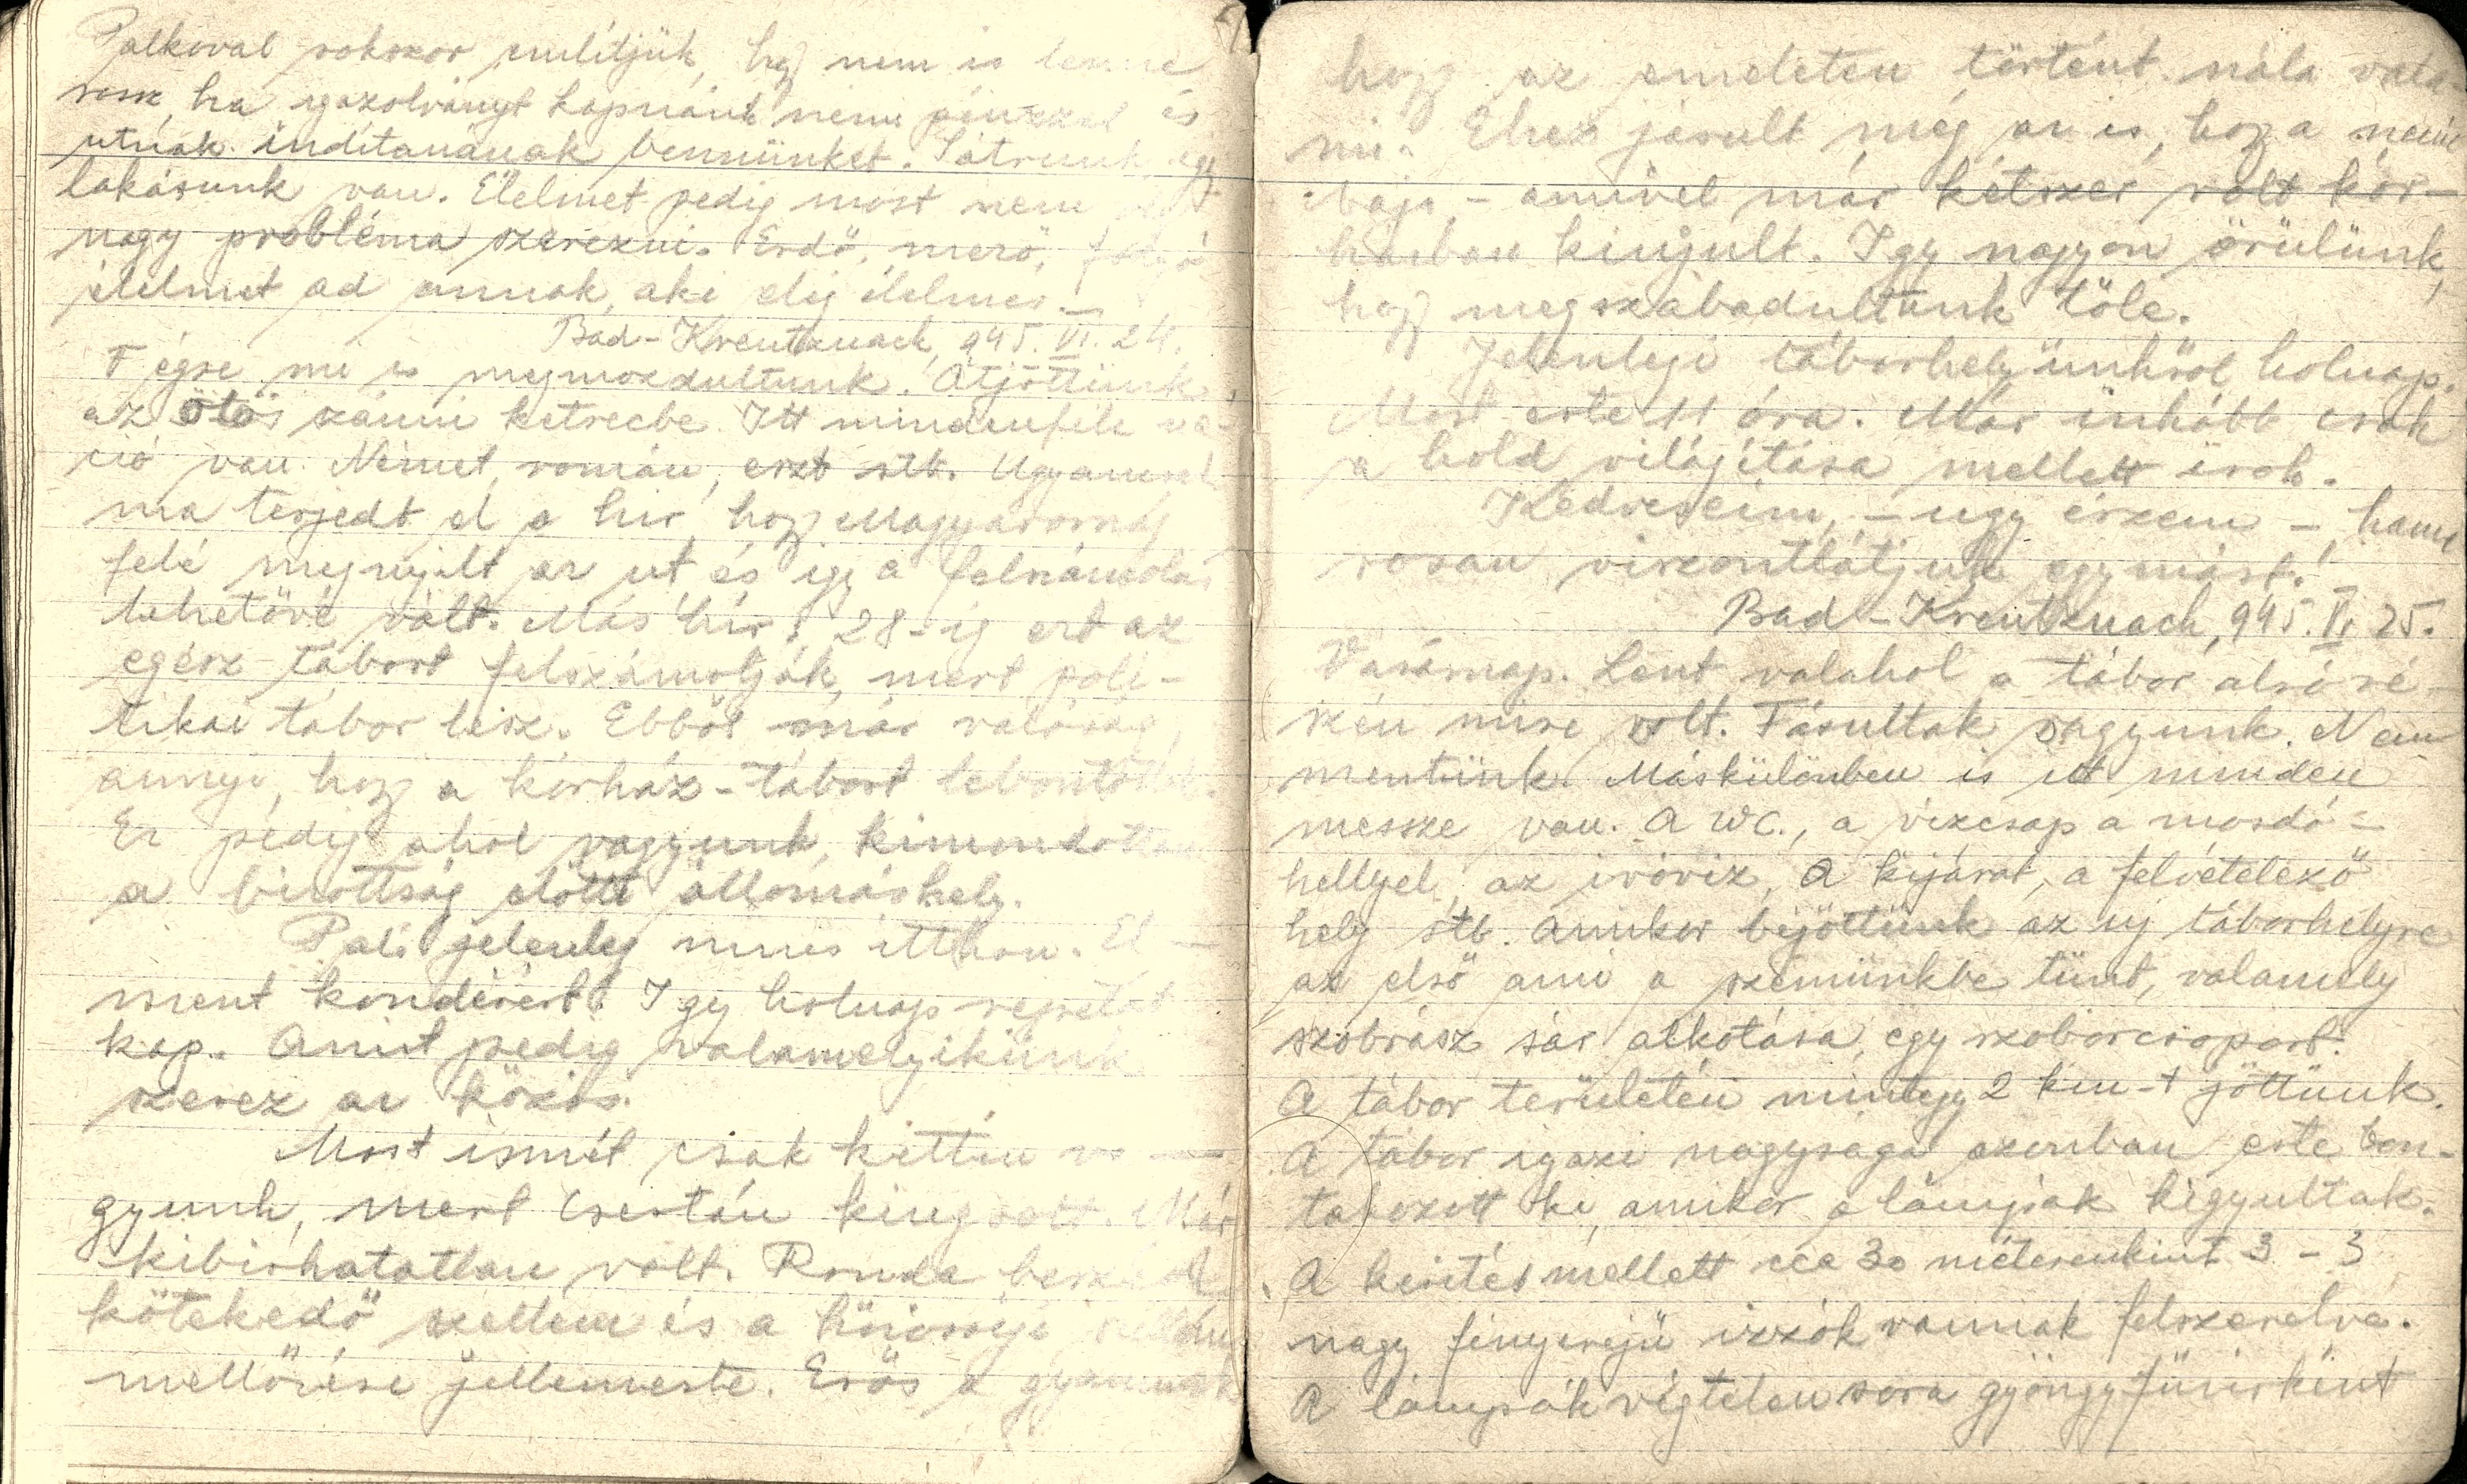 Palkoval sokszor említjük, hogy nem is lenne
rossz, ha igazolványt kapnánk némi pénzzel és
utnak indítanának bennünket. Sátrunk, egy
lakásunk van. Élelmet pedig most nem
nagy probléma szerezni. Erdő, mező, folyó
élelmet ad annak, aki elég élelmes.
Bad-Kreutznach, 945. VI. 24.
Végre mi is megmozdultunk. Átjöttünk
az ötös számú ketrecbe. Itt mindenféle ná-
ció van. Német, román, eszt stb. Ugyancsak
ma terjedt el a hir, hogy Magyarország
felé megnyilt az ut és igy a felszámolás
lehetővé vált. Más hir: 28-ig ezt az
egész tábort felszámolják, mert poli-
tikai tábor lesz. Ebből már valóság,
annyi, hogy a kórház-tábort lebontották.
Ez pedig ahol vagyunk, kimondottan
a bizottság előtti állomáshely.
Pali jelenleg nincs itthon. El-
ment kondérért. Igy holnap repetát
kap. Amit pedig valamelyikünk
szerez az közös.
Most ismét csak ketten va-
gyunk, mert Csertán Már
kibirhatatlan volt. Ronda beszéd,
kötekedő szellem és a közösségi
mellőzése jellemezte. Erős a gyanunk
hogy az emeleten történt nála vala-
mi. Ehez járult még az is, hogy a
baja, - amivel már kétszer volt kór-
házban kiujult. Igy nagyon örülünk,
hogy megszabadultunk tőle.
Jelenlegi táborhelyünkről holnap.
Most este 11 óra. Már inkább csak
a hold világítása mellett irok.
Kedveseim, - ugy érzem - hama-
rosan viszontlátjuk egymást!
Bad-Kreutznach, 945. VI. 25.
Vasárnap. Lent valahol a tábor alsó ré-
szén mise volt. Fásultak vagyunk. Nem
mentünk. Máskülönben is itt minden
messze van. A WC., a vizcsap a mosdó-
hellyel, az ivóviz, a kijárat, a felvételező
hely stb. Amikor bejöttünk az uj táborhelyre
az első ami a szemünkbe tünt, valamely
szobrász sár alkotása, egy szoborcsoport.
A tábor területén mintegy 2 km-t jöttünk.
A tábor igazi nagysaga azonban este bon-
takozott ki, amikor a lámpák kigyultak.
A kerités mellett cca 30 méterenkint 3 - 3
nagy fényerejü izzók vannak felszerelve.
A lámpák végtelen sora gyöngyfüzérként